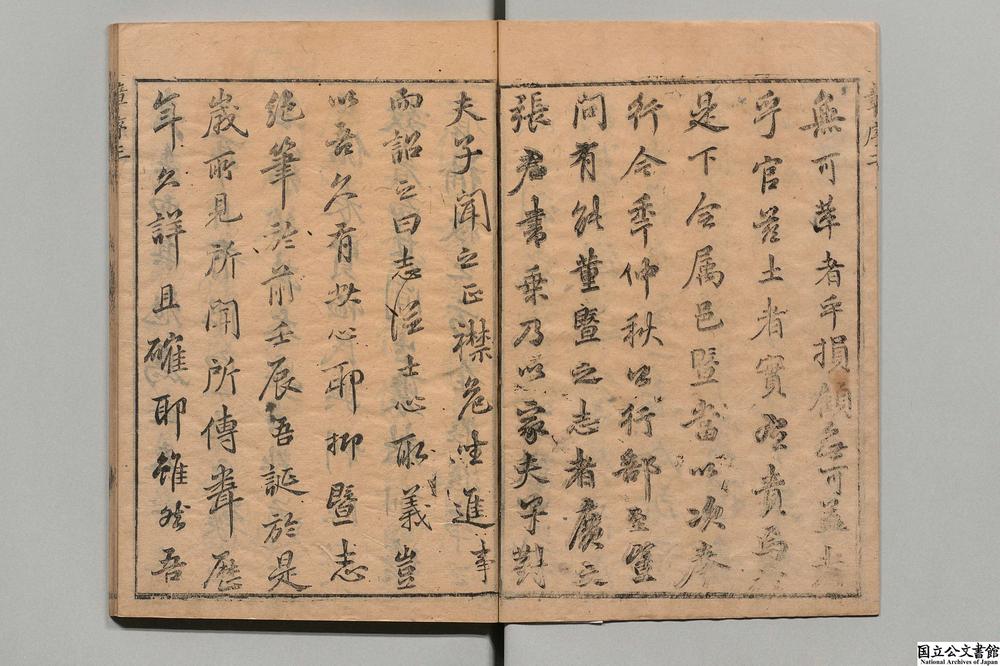 無可革者乎損領無可並者
乎官茲土者實與責焉
是下令属邑暨當以次參
行令季仲秋以行部至暨
問有能董暨之志者廣文
張君書乗乃以家夫子對
夫子聞之正襟危坐進事
而詔之曰志滋土心取義豈
以吾久有此心耶抑暨志
絶筆於前壬辰吾誕於是
歲所見所聞所傳聞歷
年久詳且確耶雖然吾
國立公文書館
National Archives of Japan